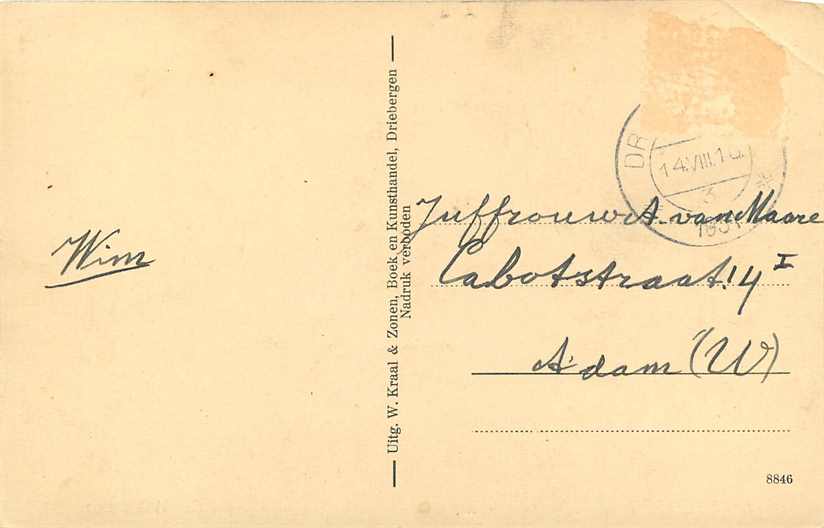 Wim
Uitg. W. Kraal & Zonen, Boek en Kunsthandel, Driebergen
Nadruk verboden
DR
14.VIII.1
3
193
Juffrouw A. van Maare
Cabotstraat 14 I
A'dam (W)
8846